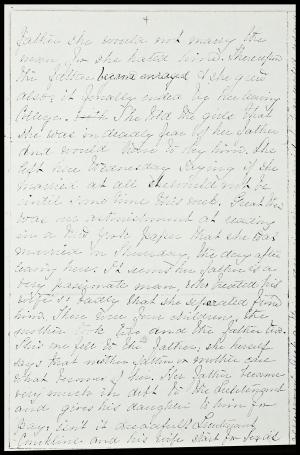 4
Father she would not marry the
man, for she hated him. Thereupon
the father became enraged & she grew
also & it finally ended by her leaving
College. She told the girls that
she was in deadly fear of her father
and would have to try him. She
left here Wednesday saying if she
married at all she would not be
until some time this week. Great
was our astonishment at reading
in a New York paper that she was
married on Thursday, the day after
leaving here. It seems her father is a
very passionate man, who treated his
wife so badly that she separated from
him. There were four children, the
mother took two and the father two.
This one fell to the father, she herself
says that neither father or mother care
what becomes of her. Her father became
very much in debt to the Lieutenant
and gives his daughter to him for
pay. Isn't it dreadful? Lieutenant
and his wife start for